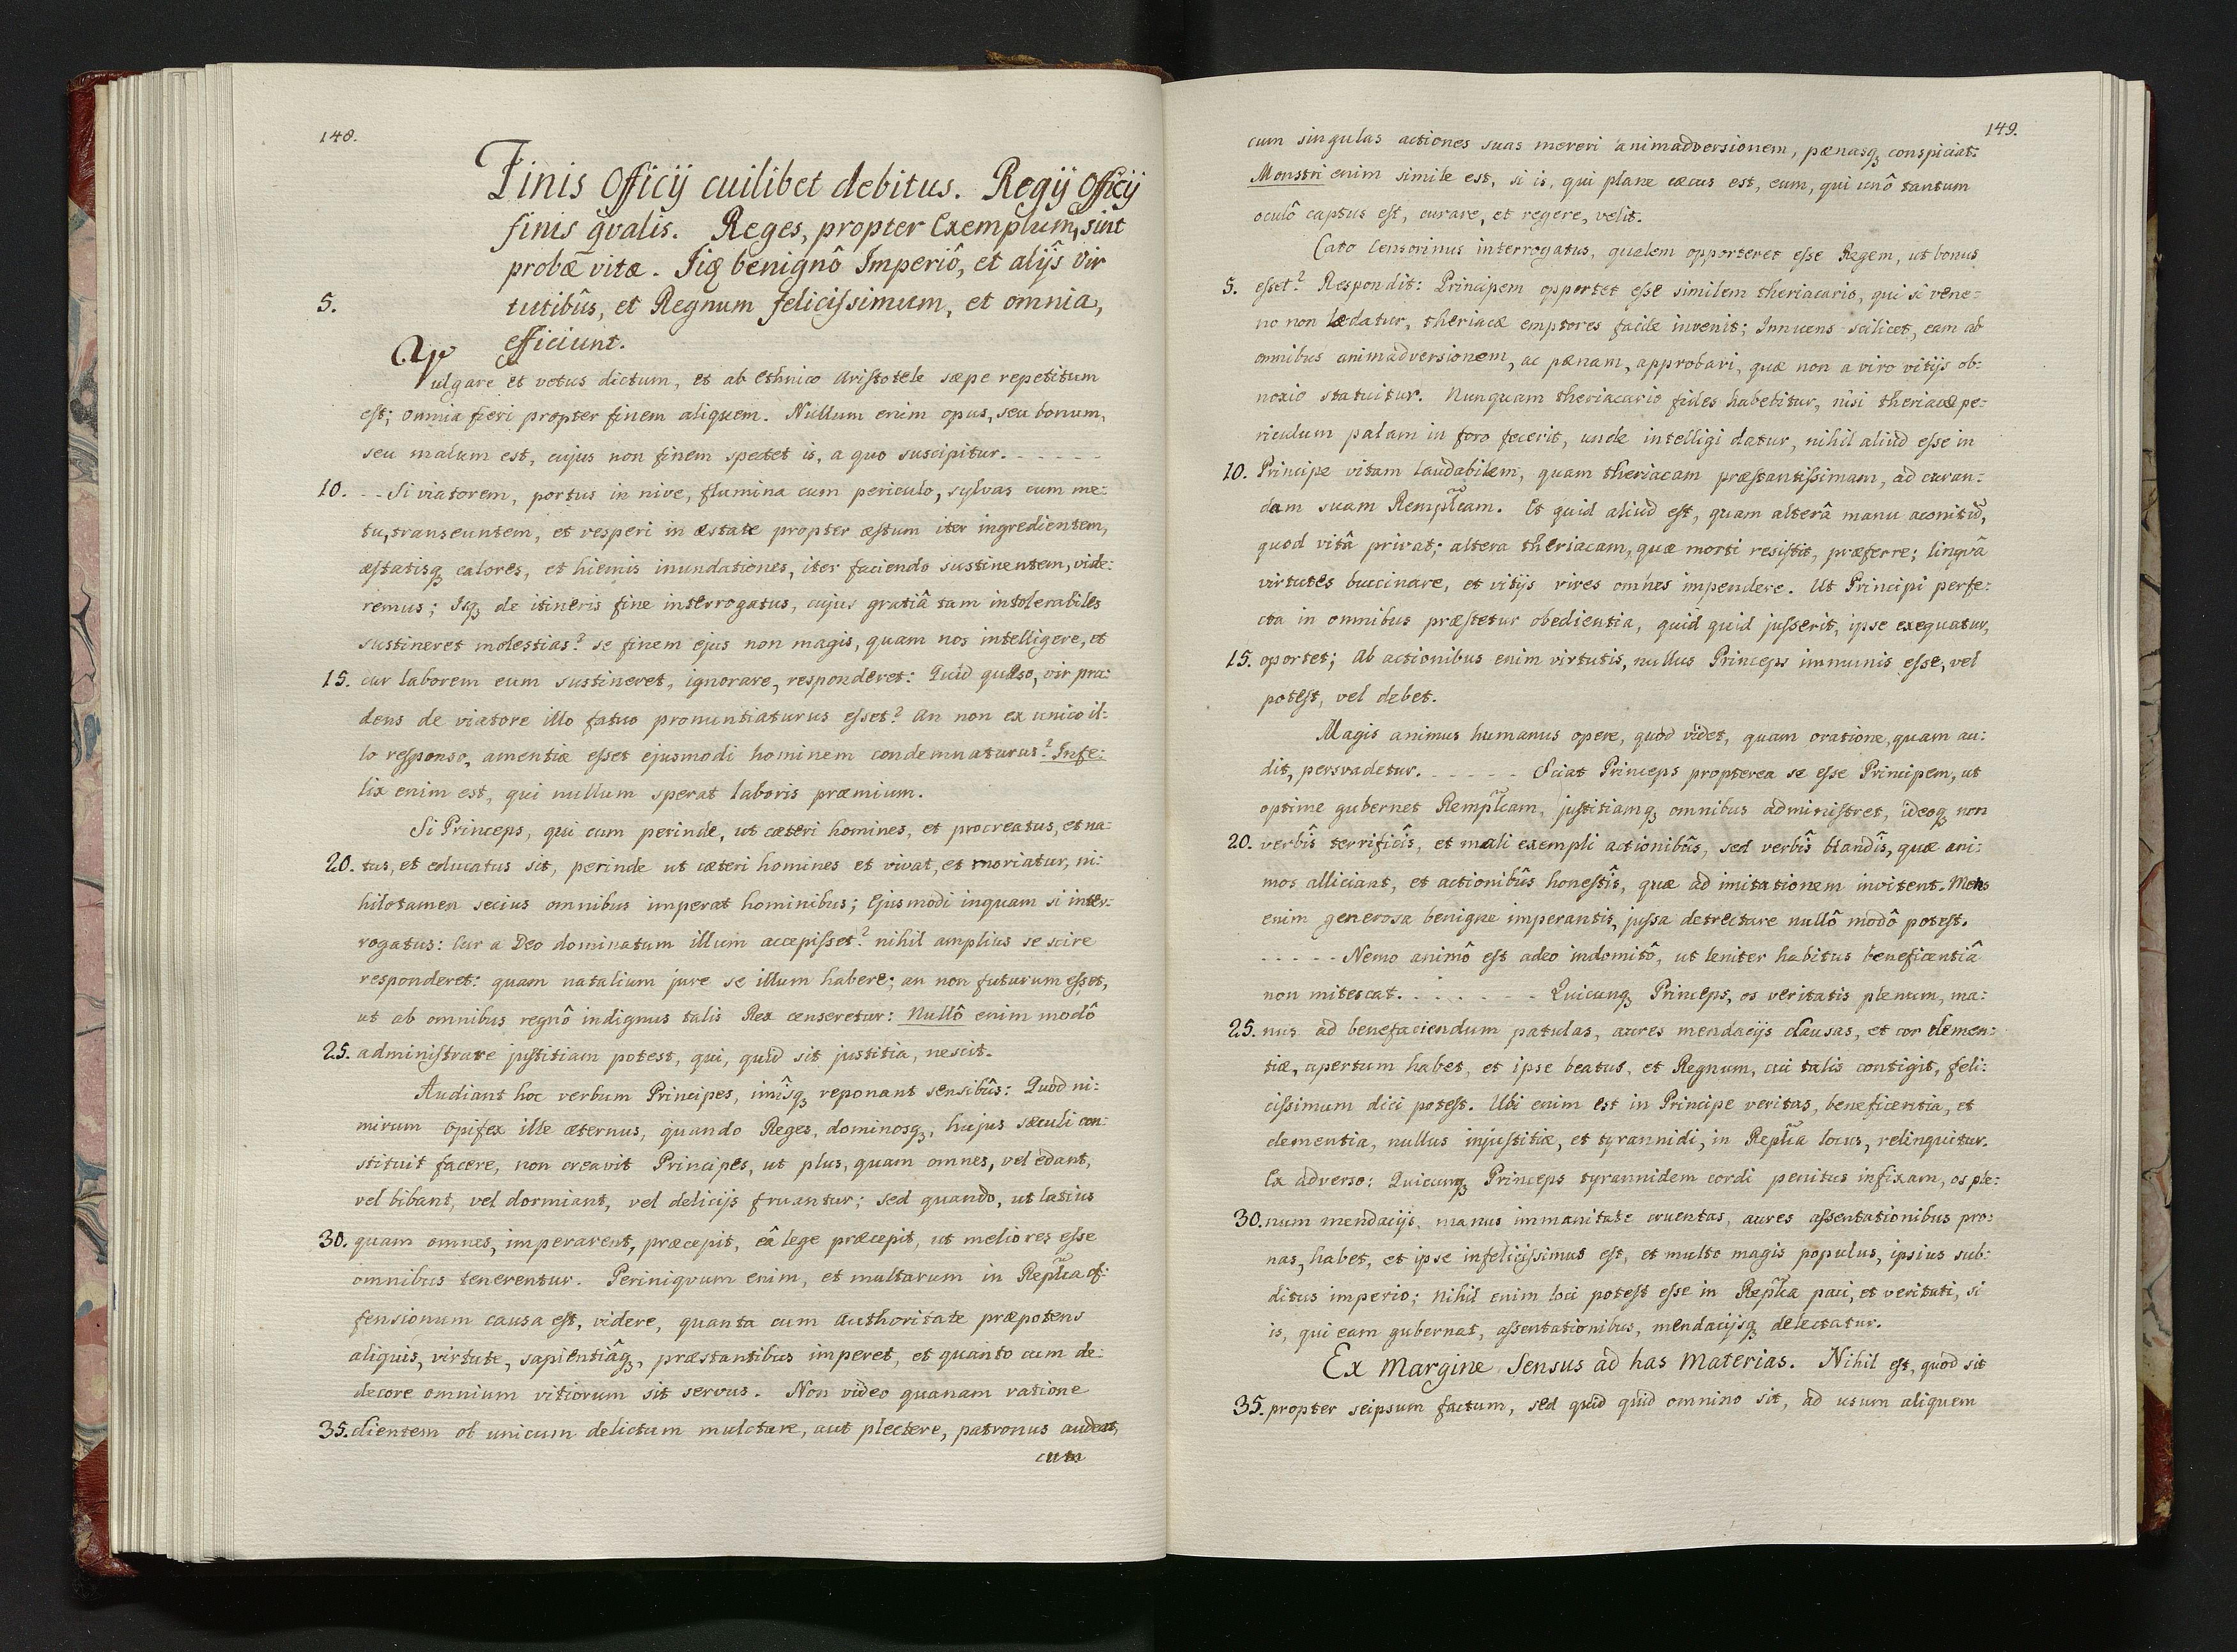 148.
Finis Officij cuilibet debitus. Regij Officij
finis qvalis. Reges, propter Exemplum, sint
probæ vitæ. Jiq; benignô Imperiô, et alijs vir
5. tutibûs, et Regnum felicissimum, et omnia,
efficiunt.
Vulgare et vetus dictum, et ab Ethnico Aristotele sæpe repetitum
est; omnia fieri propter finem aliquem. Nullum enim opus, seu bonum,
seu malum est, cujus non finem spectet is, a quo suscipitur. - - - - -
10. - - Si viatorem, portus in nive, flumina cum periculo, sylvas cum me:
tu, transeuntem, et vesperi in æstate propter æstum iter ingredientem,
æstatisq; calores, et hiemis inundationes, iter faciendo sustinentem, vide:
remus; Isq; de itineris fine interrogatus, cujus gratiâ tam intolerabiles
sustineret molestias? se finem ejus non magis, quam nos intelligere, et
15. cur laborem eum sustineret, ignorare, responderet: Quid quæso, vir pru:
dens de viatore illo fatuo pronuntiaturus esset? An non ex unico il:
lo responso, amentiæ esset ejusmodi hominem condemnaturus? Infe:
lix enim est, qui nullum sperat laboris præmium.
Si Princeps, qui cum perinde, ut cæteri homines, et procreatus, et na:
20. tus, et educatus sit, perinde ut cæteri homines et vivat, et moriatur, ni:
hilotamen secius omnibus imperat hominibus; Ejusmodi inquam si inter:
rogatus: Cur a Deo dominatum illum accepisset? nihil amplius se scire
responderet: quam natalium jure se illum habere; an non futurum esset,
ut ab omnibus regnô indignus talis Rex censeretur: Nullô enim modô
25. administrare justitiam potest, qui, quid sit justitia, nescit.
Audiant hoc verbum Principes, imîsq; reponant sensibûs: Quod ni:
mirum Opifex ille æternus, quando Reges, dominosq;, hujus sæculi con:
stituit facere, non creavit Principes, ut plus, quam omnes, vel edant,
vel bibant, vel dormiant, vel delicijs fruantur; sed quando, ut latius
30. quam omnes, imperarent, præcepit, eâ lege præcepit, ut meliores esse
omnibus tenerentur. Periniqvum enim, et multarum in Replca of:
fensionum causa est, videre, quanta cum Authoritate præpotens
aliquis, virtute, sapientiâq;, præstantibus imperet, et quanto cum de:
decore omnium vitiorum sit servus. Non video quanam ratione
35. clientem ob unicum delictum mulctare, aut plectere, patronus audeat,
cum
149.
cum singulas actiones suas mereri animadversionem, pænasq; conspiciat.
Monstri enim simile est, si is, qui plane cæcus est, eum, qui unô tantum
oculô captus est, curare, et regere, velit.
Cato Censorinus interrogatus, qualem opporteret esse Regem, ut bonus
5. esset? Respondit: Principem opportet esse similem theriacario, qui si vene:
no non lædatur, theriacæ emptores facile invenit; Innuens scilicet, eam ab
omnibus animadversionem, ac pænam, approbari, quæ non a viro vitijs ob:
noxio statuitur. Nunquam theriacario fides habebitur, nisi theriacæ pe:
riculum palam in foro fecerit, unde intelligi datur, nihil aliud esse in
10. Principe vitam laudabilem, quam theriacam præstantissimam, ad curan:
dam suam Remplcam. Et quid aliud est, quam alterâ manu aconitũ,
quod vitâ privat; altera theriacam, quæ morti resistit, præferre; linguâ
virtutes buccinare, et vitijs vires omnes impendere. Ut Principi perfe:
cta in omnibus præstetur obedientia, quid quid jusserit, ipse exequatur,
15. oportet; Ab actionibus enim virtutis, nullus Princeps immunis esse, vel
potest, vel debet.
Magis animus humanus opere, quod videt, quam oratione, quam au:
dit, persvadetur. - - - - - Sciat Princeps propterea se esse Principem, ut
optime gubernet Remplcam, justitiamq; omnibus administret, ideoq; non
20. verbîs terrificîs, et mali exempli actionibûs, sed verbîs blandîs, quæ ani:
mos alliciant, et actionibûs honestîs, quæ ad imitationem invitent. Mens
enim generosa benigne imperantis, jussa detrectare nullô modô potest.
- - - - - Nemo animô est adeo indomitô, ut leniter habitus beneficentiâ
non mitescat. - - - - - - Quicunq; Princeps, os veritatis plenum, ma:
25. nus ad benefaciendum patulas, aures mendacijs clausas, et cor clemen:
tiæ, apertum habet, et ipse beatus, et Regnum, cui talis contigit, feli:
cissimum dici potest. Ubi enim est in Principe veritas, beneficentia, et
clementia, nullus injustitiæ, et tyrannidi, in Replca locus, relinquitur.
Ex adverso: Quicunq; Princeps tyrannidem cordi penitus infixam, os ple:
30. num mendacijs, manus immanitate cruentas, aures assentationibus pro:
nas, habet, et ipse infelicissimus est, et multo magis populus, ipsius sub:
ditus imperio; nihil enim loci potest esse in Replca paci, et veritati, si
is, qui eam gubernat, assentationibus, mendacijsq; delectatur.
Ex Margine, Sensus ad has Materias. Nihil est, quod sit
35. propter seipsum factum, sed quid quid omnino sit, ad usum aliquem